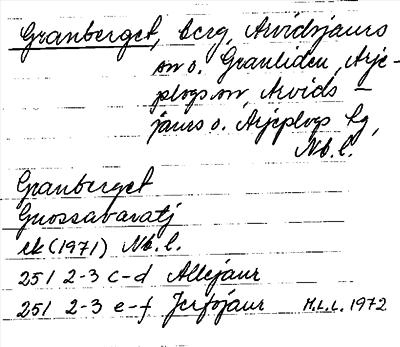 Granberget, berg, Arvidsjaurs
sn o. Granliden, Arje-
plogs sn, Arvids-
jaurs o. Arjeplogs tg,
Nb. l.
Granberget
Guossavaratj
ek (1971) Nb. l.
25I 2-3 c-d Allejaur
25I 2-3 e-f Jerfojaur H.L.L. 1972